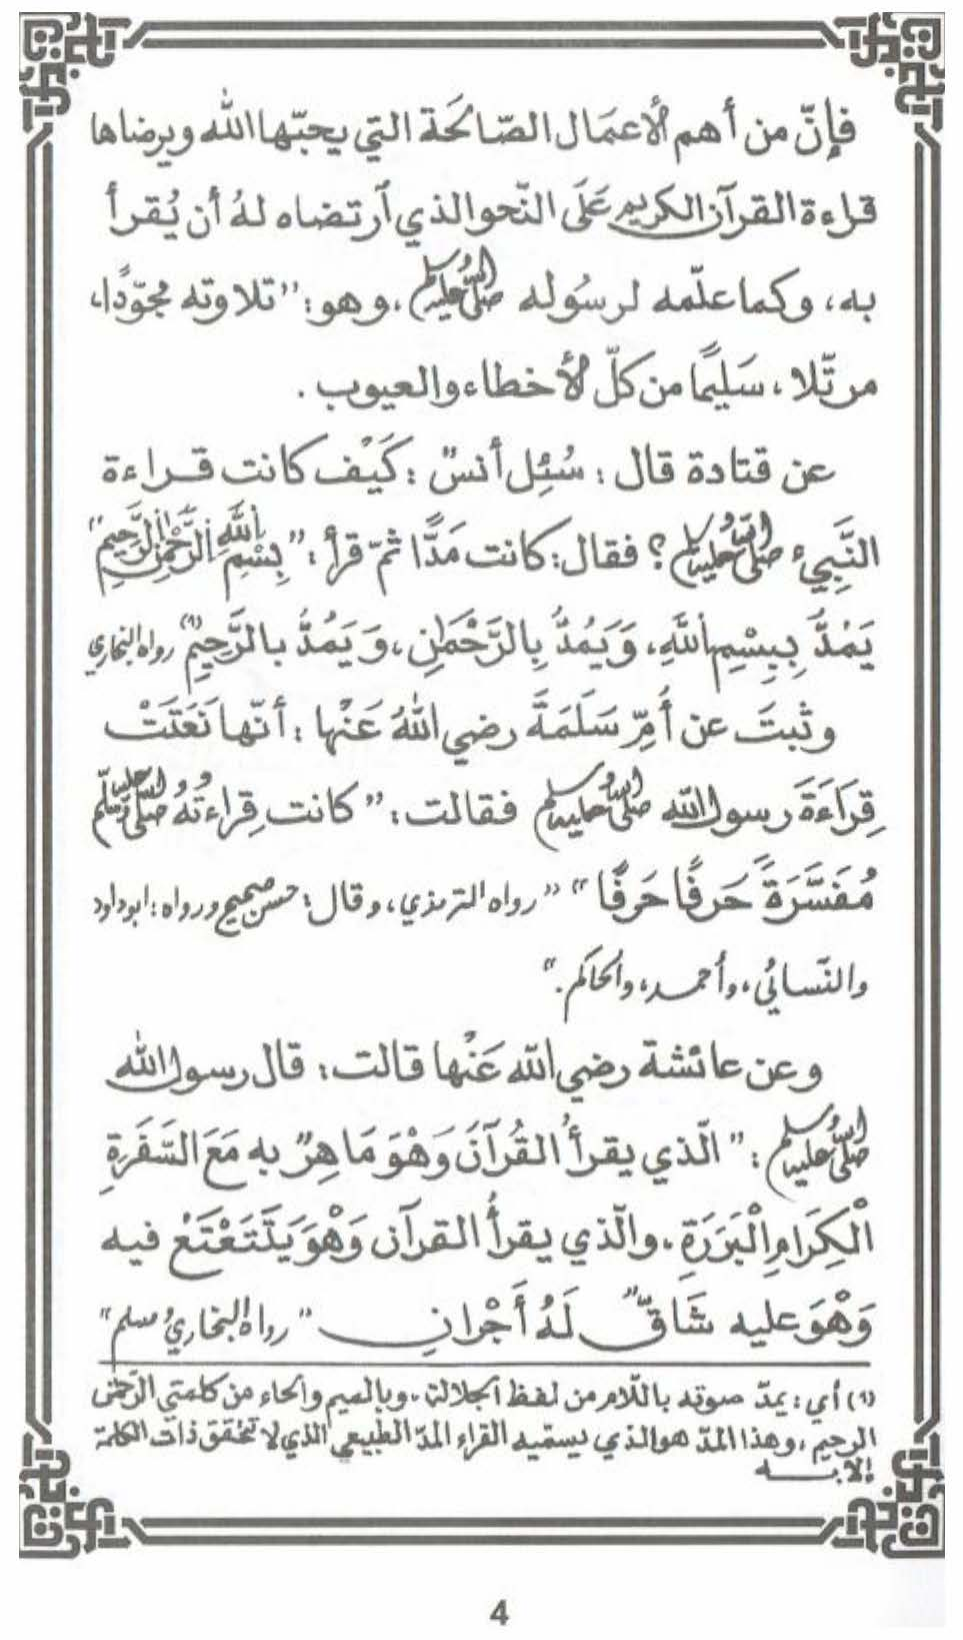 فإنّ من أهم الأعمَال الصّالحَة التي يحبّها الله ويرضاها
قراءة القرآن الكريم عَلَى النّحو الذي ٱرتضاه لهُ أن يُقرأ
به، وكما علّمه لرسُوله ﷺ، وهو: "تلاوته مجوّدًا،
مرتّلا، سَليمًا من كلّ الأخطاء والعيوب.
عن قتادة قال: سُئِل أنسٌ: كَيْف كانت قراءة
النَّبِيء ﷺ؟ فقال: كانت مَدًّا ثمّ قرأ: "بِسْمِ اللَّهِ الرَّحْمَٰنِ الرَّحِيمِ"
يَمُدُّ بِبِسْمِ اللَّهِ، وَيَمُدُّ بِالرَّحْمَٰنِ، وَيَمُدُّ بالرَّحِيمِ (١) رواه البخاري
وثبتَ عن أُمِّ سَلَمَةَ رضي اللهُ عَنْها: أنّها نَعَتَتْ
قِرَاءَةَ رسول الله ﷺ فقالت: "كانت قِراءتُهُ ﷺ
مُفَسَّرَةً حَرفًا حَرفًا" "رواه الترمذي، وقال: حسن صحيح ورواه: ابوداود
والنّسائي، وأحمد، والحاكم."
وعن عائشة رضي الله عَنْها قالت: قال رسول الله
ﷺ: "الّذي يقرأُ القُرآنَ وَهْوَ مَاهِرٌ به مَعَ السَّفَرَةِ
الْكِرَامِ الْبَرَرَةِ، والّذي يقرأُ القرآن وَهْوَ يَتَتَعْتَعُ فيه
وَهْوَ عليه شَاقٌّ لَهُ أَجْرانِ "رواه البخاريُ مسلم"
(١) أي: يمدّ صوته باللّام من لفظ الجلالة، وبالميم والحاء من كلمتي الرّحمٰن
الرحيم، وهذا المدّ هو الذي يسمّيه القراء المدّ الطّبيعي الذي لا تتحقق ذات الكلمة
إلا به
4